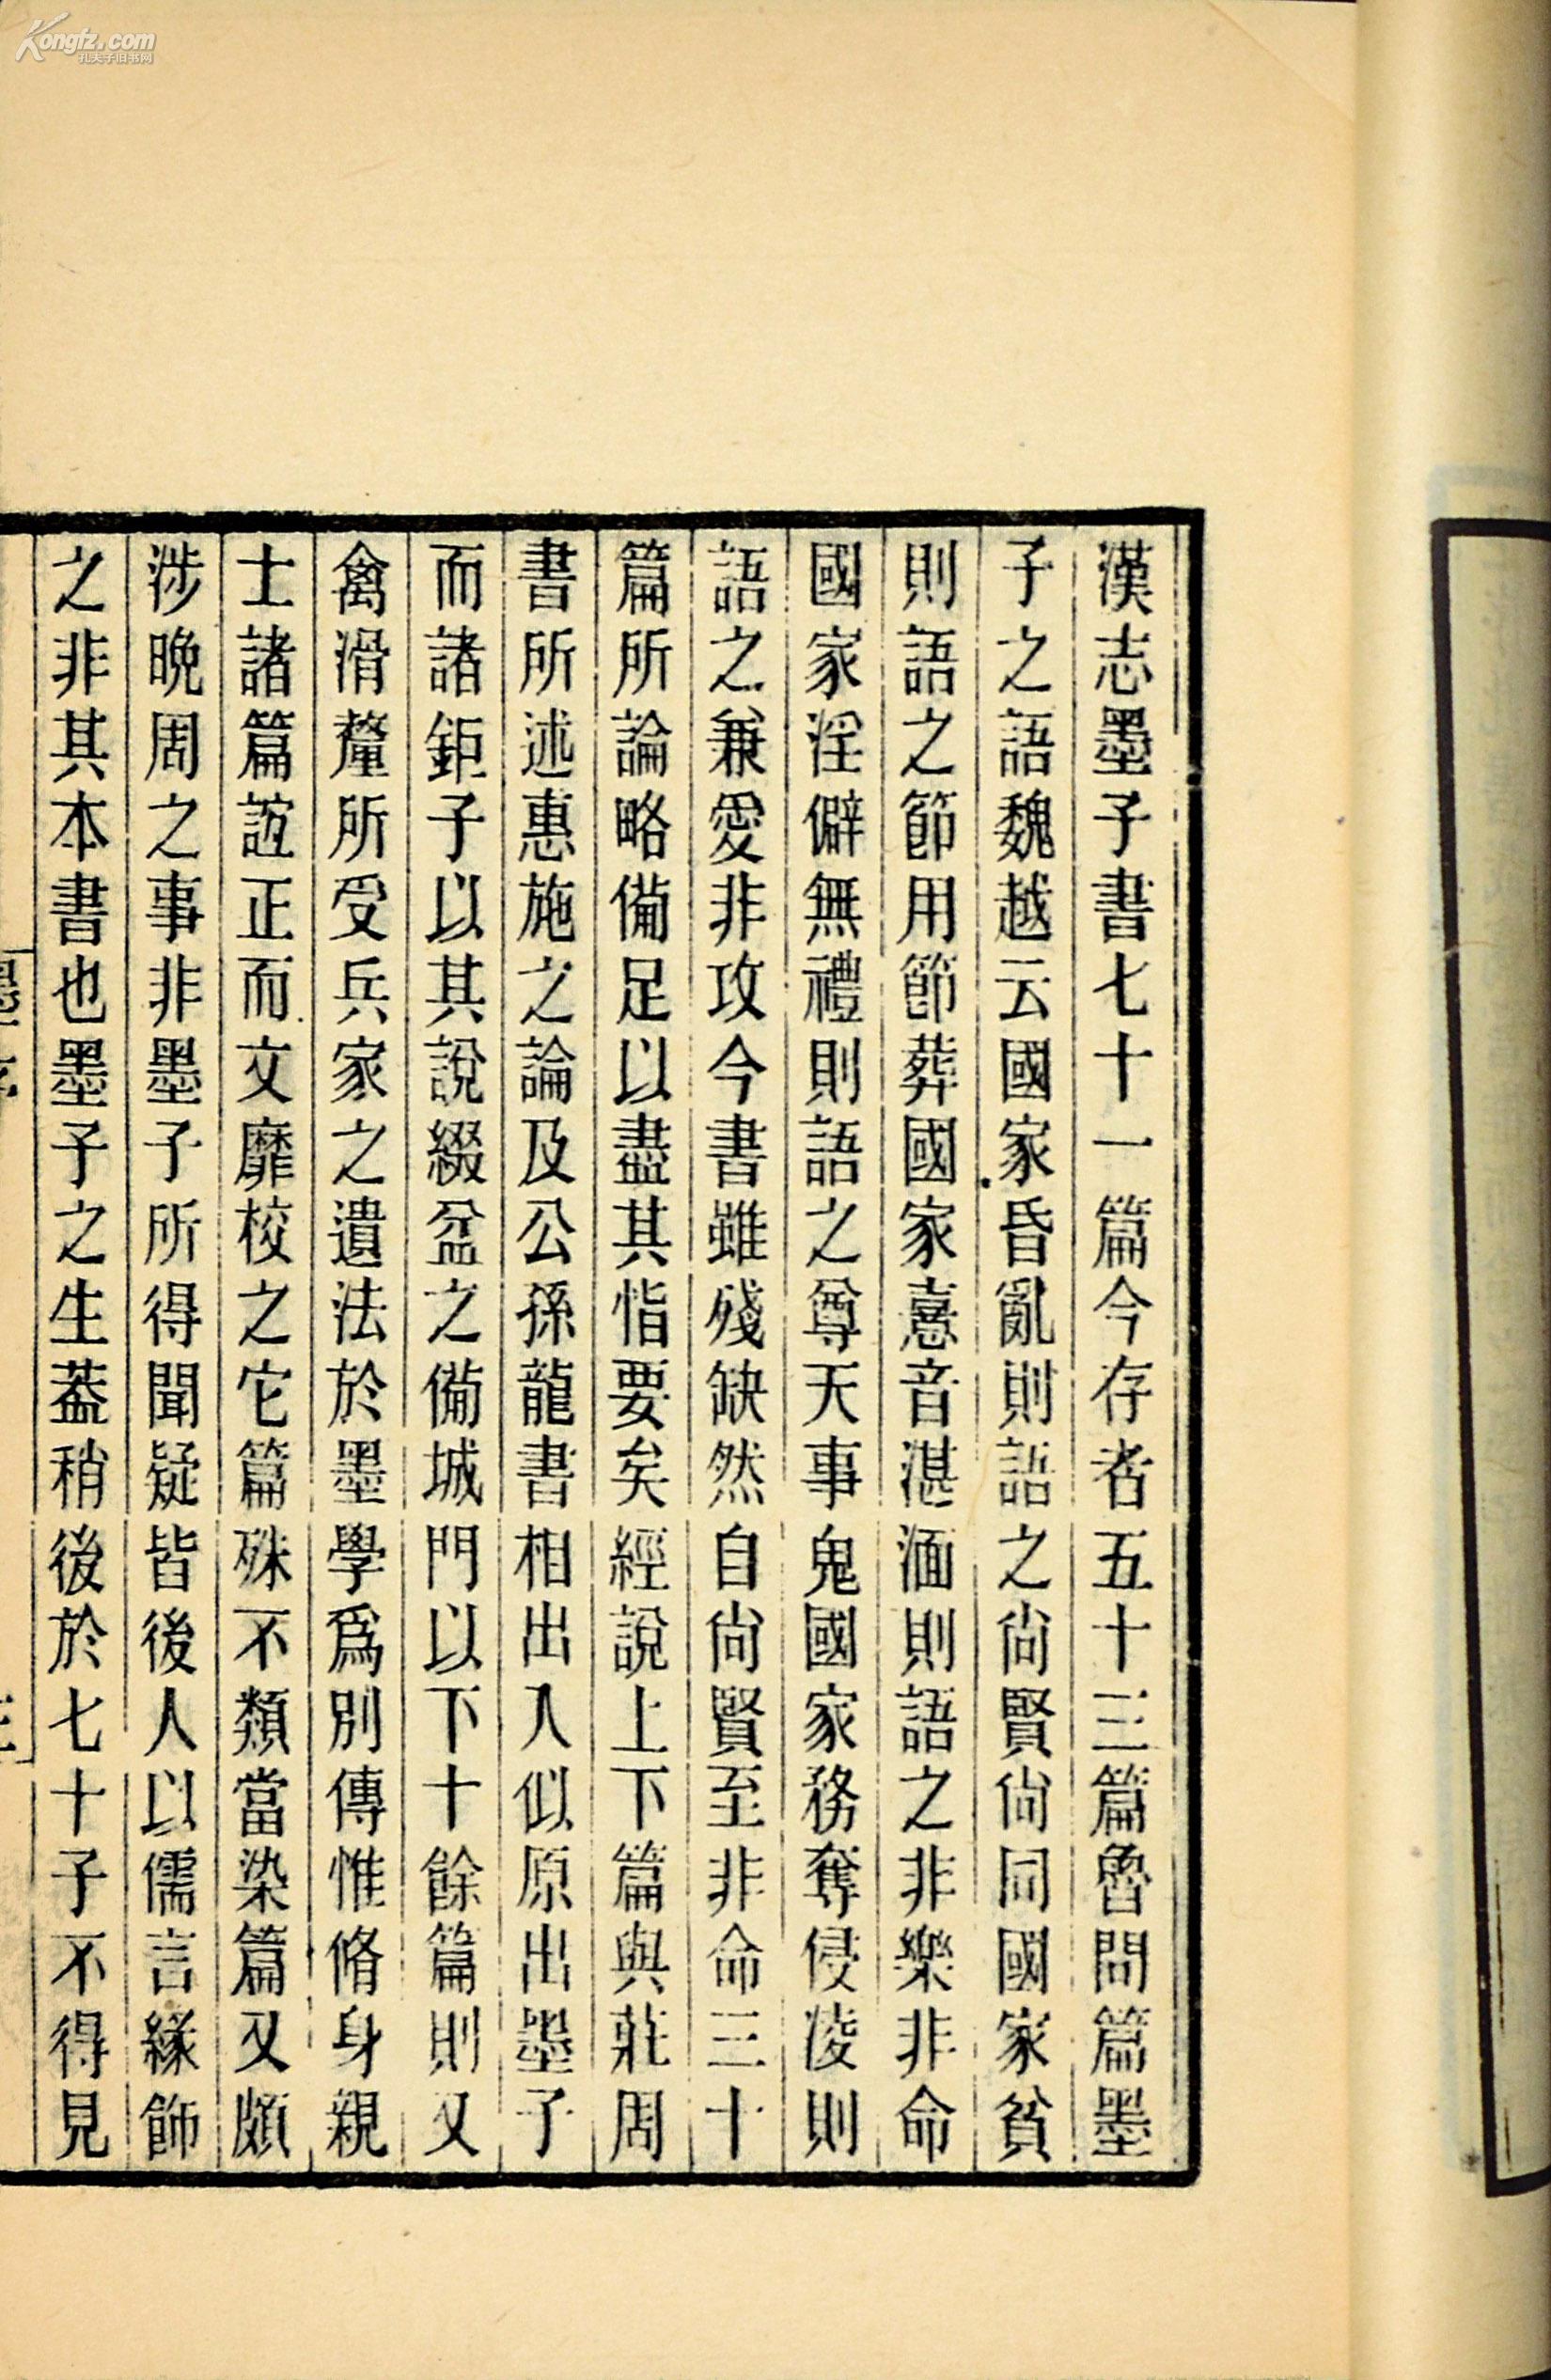 漢志墨子書七十一篇今存者五十三篇魯問篇墨
子之語魏越云國家昏亂則語之尙賢尙同國家貧
則語之節用節葬國家憙音湛湎則語之非樂非命
國家淫僻無禮則語之尊天事鬼國家務奪侵淩則
語之兼愛非攻今書雖殘缺然自尙賢至非命三十
篇所論略備足以盡其恉要矣經說上下篇與莊周
書所述惠施之論及公孫龍書相出入似原出墨子
而諸鉅子以其說綴益之備城門以下十餘篇則又
禽滑釐所受兵家之遺法於墨學爲別傳惟脩身親
士諸篇誼正而文靡校之它篇殊不類當染篇又頗
涉晚周之事非墨子所得聞疑皆後人以儒言緣飾
之非其本書也墨子之生葢稍後於七十子不得見
Kongfz.com
孔夫子旧书网